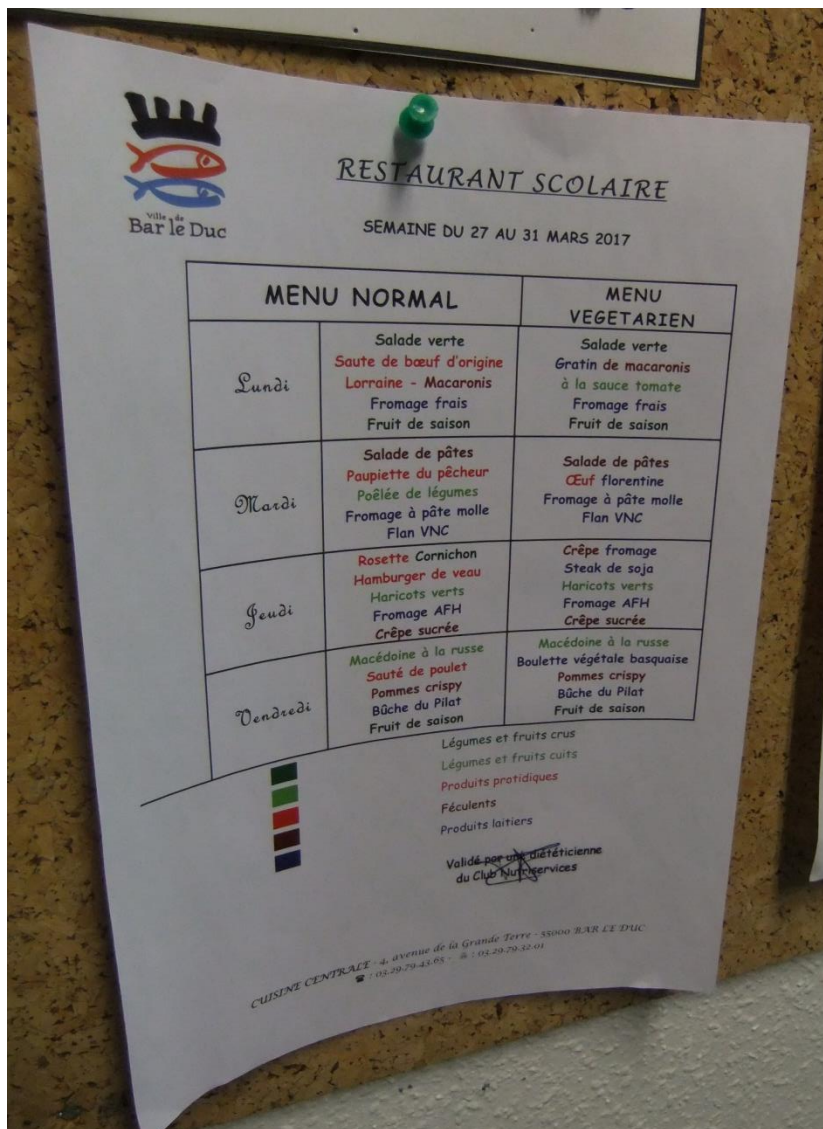 Ville de
Bar le Duc
RESTAURANT SCOLAIRE
SEMAINE DU 27 AU 31 MARS 2017
MENU NORMAL
MENU
VEGETARIEN
Lundi
Salade verte
Saute de bœuf d'origine
Lorraine - Macaronis
Fromage frais
Fruit de saison
Salade verte
Gratin de macaronis
à la sauce tomate
Fromage frais
Fruit de saison
Mardi
Salade de pâtes
Paupiette du pêcheur
Poêlée de légumes
Fromage à pâte molle
Flan VNC
Salade de pâtes
Œuf florentine
Fromage à pâte molle
Flan VNC
Jeudi
Rosette Cornichon
Hamburger de veau
Haricots verts
Fromage AFH
Crêpe sucrée
Crêpe fromage
Steak de soja
Haricots verts
Fromage AFH
Crêpe sucrée
Vendredi
Macédoine à la russe
Sauté de poulet
Pommes crispy
Bûche du Pilat
Fruit de saison
Macédoine à la russe
Boulette végétale basquaise
Pommes crispy
Bûche du Pilat
Fruit de saison
Légumes et fruits crus
Légumes et fruits cuits
Produits protidiques
Féculents
Produits laitiers
Validé par une diététicienne
du Club Nutriservices
CUISINE CENTRALE - 4, avenue de la Grande Terre - 55000 BAR LE DUC
☎ : 03.29.79.43.65 - 🖷 : 03.29.79.32.01